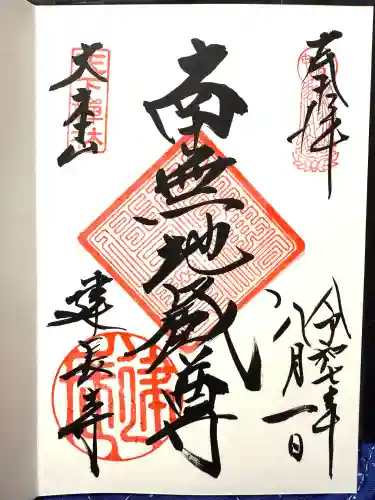 奉拝
令和七年
八月一日
南無地蔵尊
大本山
建長寺
天下禅林